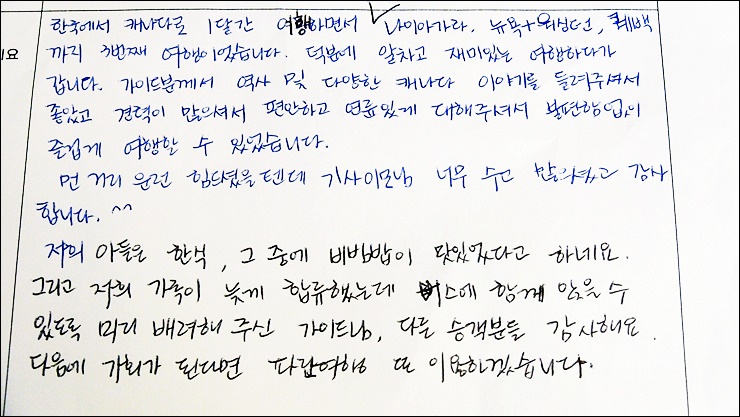 한국에서 캐나다로 1달간 여행하면서 나이아가라, 뉴욕+워싱턴, 퀘백
까지 3번째 여행이었습니다. 덕분에 알차고 재미있는 여행하다가
갑니다. 가이드분께서 역사 및 다양한 캐나다 이야기를 들려주셔서
좋았고 경력이 많으셔서 편안하고 연륜있게 대해주셔서 불편함없이
즐겁게 여행할 수 있었습니다.
먼 거리 운전 힘드셨을텐데 기사이모님 너무 수고 많으셨고 감사
합니다. ^^
저희 아들은 한식, 그 중에 비빔밥이 맛있었다고 하네요.
그리고 저희 가족이 늦게 합류했는데 버스에 함께 앉을 수
있도록 미리 배려해 주신 가이드님, 다른 승객분들 감사해요.
다음에 기회가 된다면 파란여행 또 이용하겠습니다.